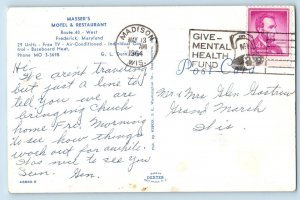 MASSER'S
MOTEL & RESTAURANT
Route 40 - West
Frederick, Maryland
29 Units - Free TV - Air-Conditioned - Individual Con-
trol - Baseboard Heat.
Phone MO 3-3698
MADISON
MAY 12
PM
1964
WIS.
GIVE
MENTAL
HEALTH
FUND
Hi -
We aren't traveling
but just a line to
tell you we are
bringing Chuck
home Fri. Morning
to see how things
work out for awhile.
Was nice to see you
Sun. Gen.
Mr & Mrs Glen
Grand Marsh
Wis.
DEXTER